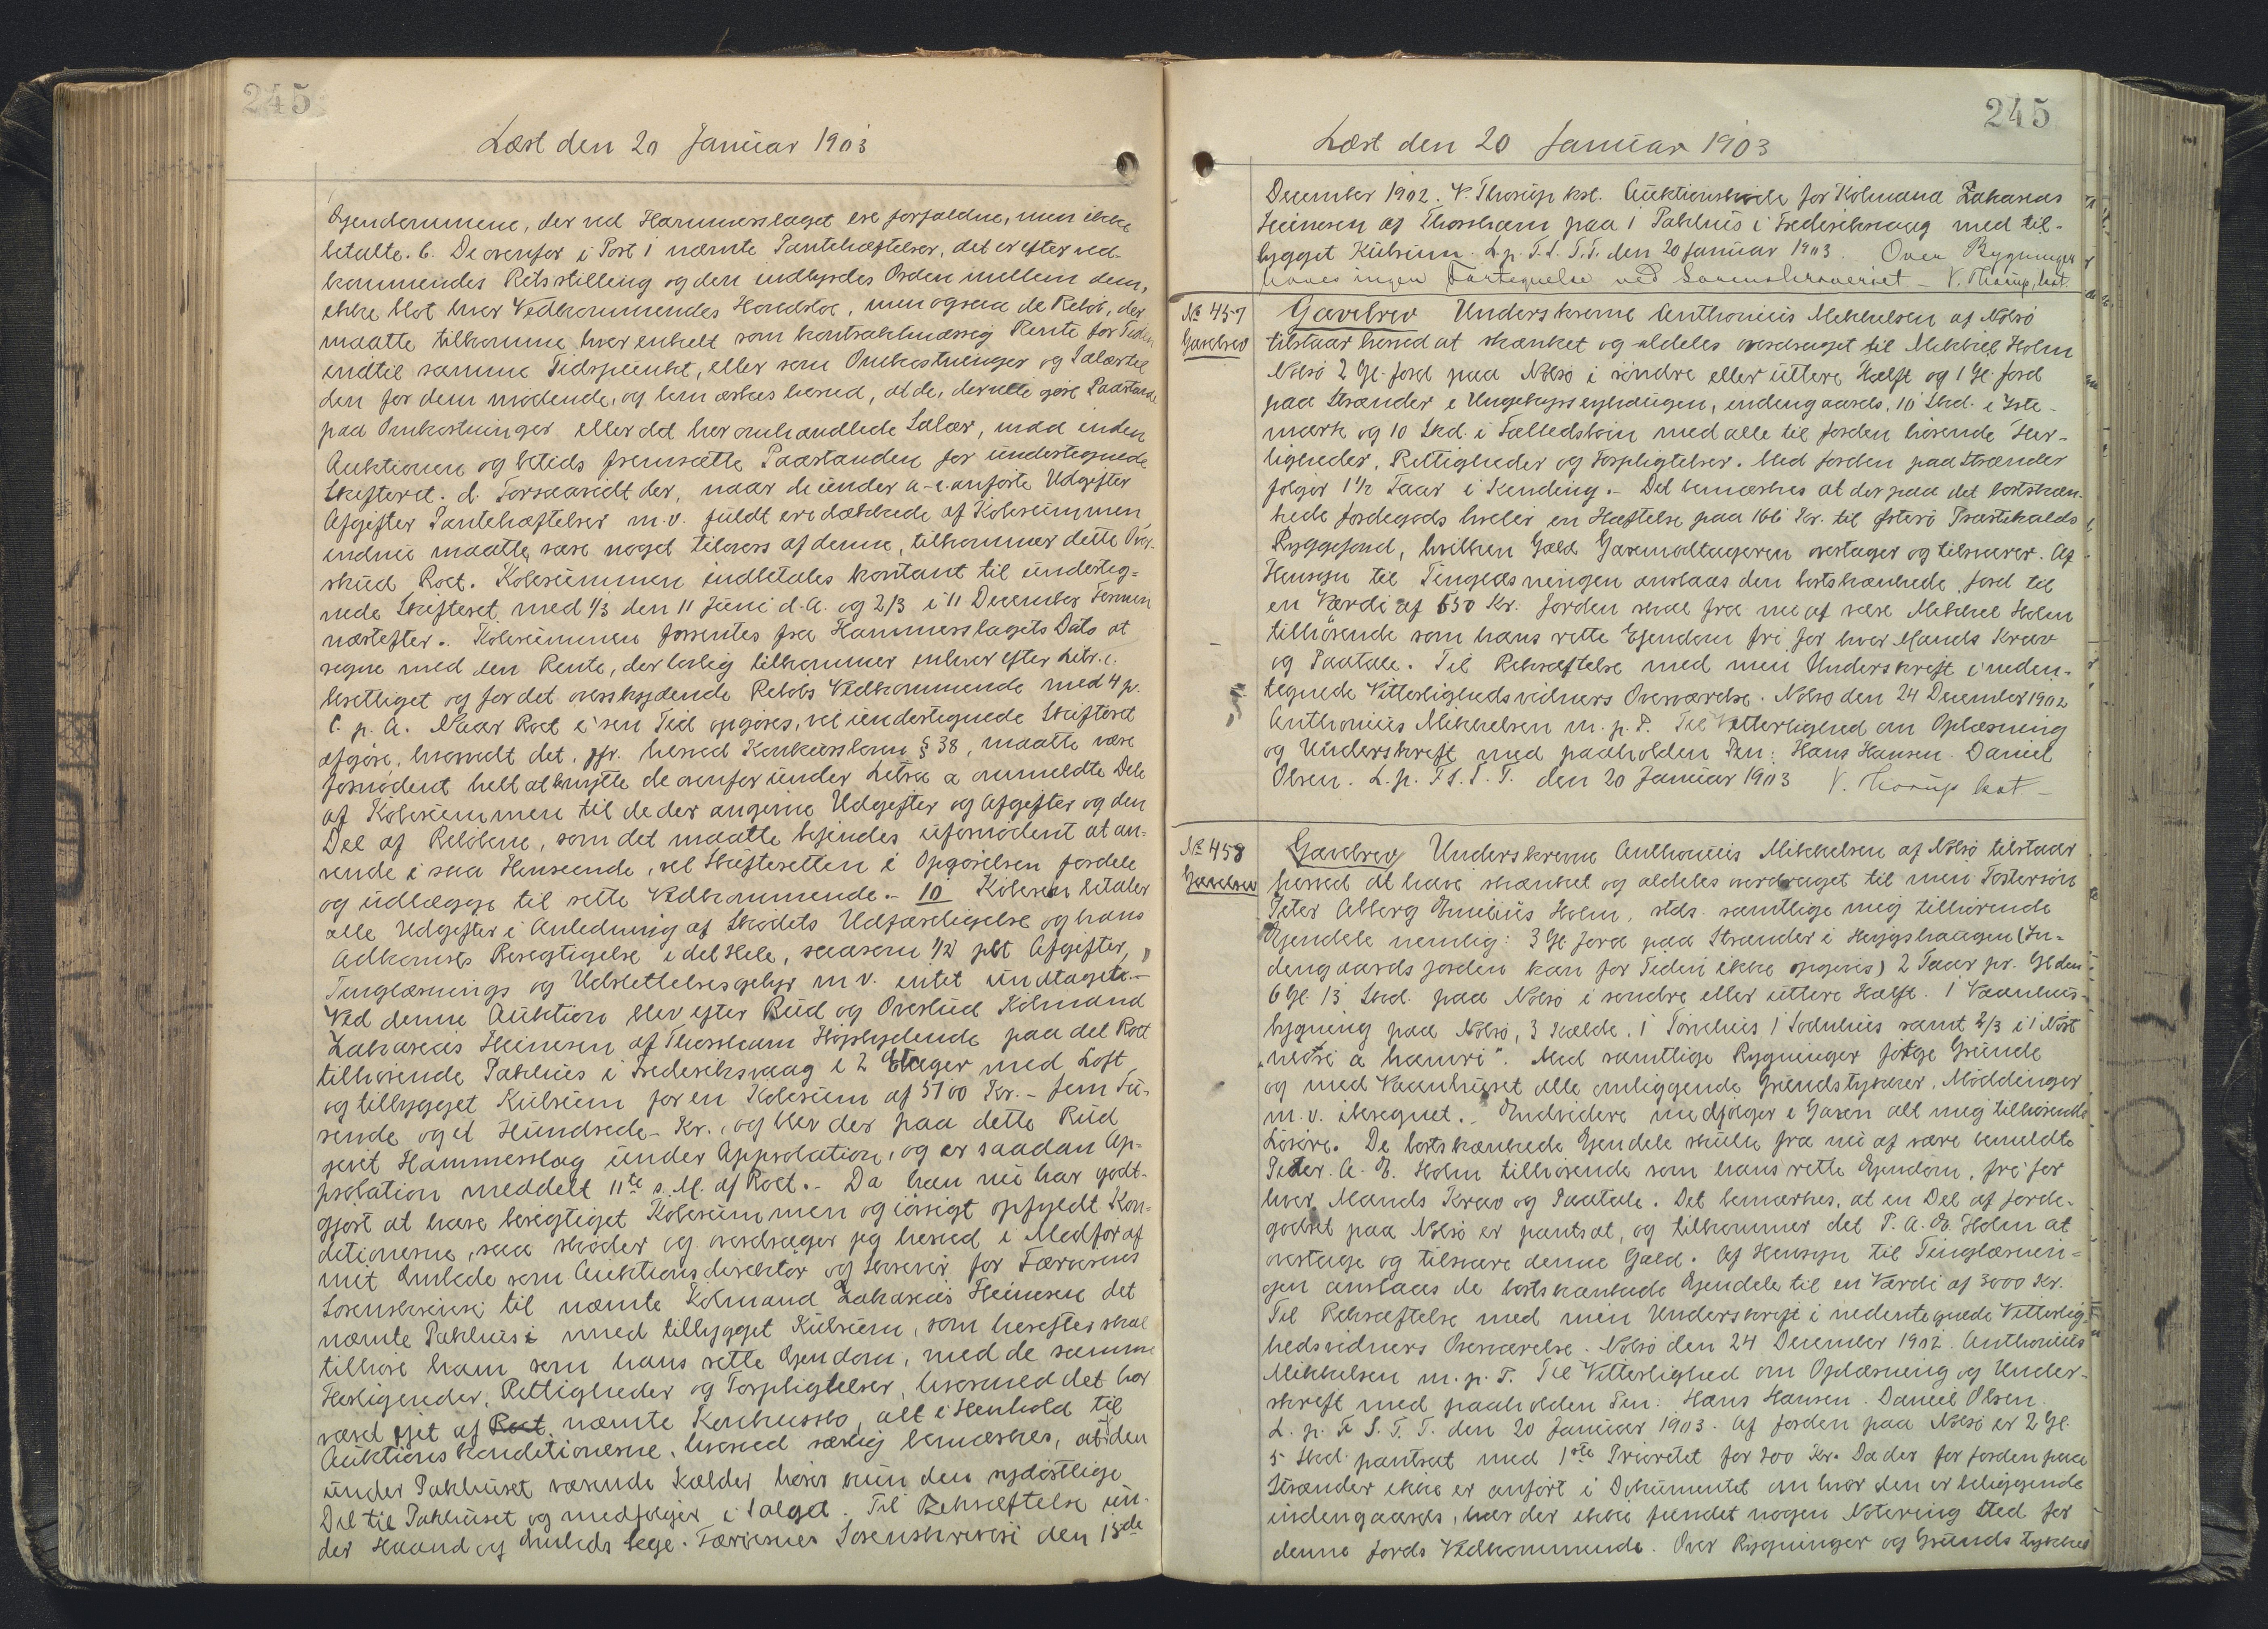 245
Læst den 20 Januar 1903
Ejendommene, der ved Hammerslaget ere forfaldne, men ikke
betalte. c. De ovenfor i Post 1 nævnte Pantehæftelser, det er efter ved-
kommendes Retsstilling og den indbyrdes Orden mellem dem,
ikke blot hver Vedkommendes Hovedstol, men ogsaa de Beløb, der
maatte tilkomme hver enkelt som kontraktmæssig Rente for Tiden
indtil samme Tidspunkt, eller som Omkostninger og Salær til
den for dem mødende, og bemærkes herved, at de, der ville gøre Paastand
paa Omkostninger eller det her omhandlede Salær, maa inden
Auktionen og betids fremsætte Paastanden for undertegnede
Skifteret. d. Forsaavidt der, naar de under a-c. anførte Udgifter
Afgifter Pantehæftelser m.v. fuldt ere dækkede af Købesummen,
endnu maatte være noget tilovers af denne, tilkommer dette Over-
skud Boet. Købesummen indbetales kontant til underteg-
nede Skifteret med 1/3 den 11 Juni d.A. og 2/3 i 11 December Termin
næstefter. Købesummen forrentes fra Hammerslagets Dato at
regne med den Rente, der lovlig tilkommer enhver efter Litr. c.
berettiget og for det overskydende Beløbs Vedkommende med 4 p.
C. p. A. Naar Boet i sin Tid opgøres, vil undertegnede Skifteret
afgøre, hvorvidt det, jfr. herved Konkursloven § 38, maatte være
fornødent helt at benytte de ovenfor under Litra a ommeldte Dele
af Købesummen til de der angivne Udgifter og Afgifter og den
Del af Beløbene, som det maatte befindes ufornødent at an-
vende i saa Henseende, vil Skifteretten i Opgørelsen fordele
og udlægge til rette Vedkommende. - 10 Køberen betaler
alle Udgifter i Anledning af Skødets Udfærdigelse og hans
Adkomsts Berigtigelse i det Hele, saasom 1/2 pCt Afgiften,
Tinglæsnings og Udslettelsesgebyr m v. intet undtaget. -
Ved denne Auktion blev efter Bud og Overbud Købmand
Zakarias Heinesen af Thorshavn Højstbydende paa det Boet
tilhørende Pakhus i Frederiksvaag i 2 Etager med Loft
og tilbygget Kulrum for en Købesum af 5100 Kr. - fem Tu-
sende og et Hundrede - Kr., og blev der paa dette Bud
givet Hammerslag under Approbation, og er saadan Ap-
probation meddelt 11te s. M. af Boet. - Da han nu har godt-
gjort at have berigtiget Købesummen og iøvrigt opfyldt Kon-
ditionerne, saa skøder og overdrager jeg herved i Medfør af
mit Embede som Auktionsdirektør og Skriver for Færøernes
Sorenskriveri til nævnte Købmand Zakarias Heinesen det
nævnte Pakhus i med tilbygget Kulrum, som herefter skal
tilhøre ham som hans rette Ejendom, med de samme
Herligheder, Rettigheder og Forpligtelser, hvormed det har
været ejet af Boet nævnte Konkursbo, alt i Henhold til
Auktionskonditionerne, hvorved særlig bemærkes, at den
under Pakhuset værende Kælder hører kun den sydøstlige
Del til Pakhuset og medfølger i Salget. Til Bekræftelse un-
der Haand og Embeds Segl. Færøernes Sorenskriveri den 15de
245
Læst den 20 Januar 1903
December 1902. V. Thorup kst. Auktionsskøde for Købmand Zakarias
Heinesen af Thorshavn paa 1 Pakhus i Frederiksvaag med til-
bygget Kulrum. L. p. F.S.T.T. den 20 Januar 1903. Over Bygninger
haves ingen Fortegnelse ved Sorenskriveriet - V. Thorup, kst.
№ 457
Gavebrev
Gavebrev Underskrevne Anthonius Mikkelsen af Nolsø
tilstaar herved at skænket og aldeles overdraget til Mikkel Holm
Nolsø 2 Gl. Jord paa Nolsø i søndre eller uttere Hælft og 1 Gl. Jord
paa Strænder i Ungekyrs eyhaugen, indengaards, 10 Skd. i Yste-
mørk og 10 Skd. i Fælledskoin med alle til Jorden hørende Her-
ligheder, Rettigheder og Forpligtelser. Med Jorden paa Strænder
følger 1 1/2 Faar i Kending. - Det bemærkes at der paa det bortskæn-
kede Jordegods hviler en Hæftelse paa 166 Kr. til Østerø Præstekalds
Byggefond, hvilken Gæld Gavemodtageren overtager og tilsvarer. Af
Hensyn til Tinglæsningen anslaas den bortskænkede Jord til
en Værdi af 650 Kr. Jorden skal fra nu af være Mikkel Holm
tilhørende som hans rette Ejendom fri for hver Mands Krav
og Paatale. Til Bekræftelse med min Underskrift i neden-
tegnede Vitterlighedsvidners Overværelse. Nolsø den 24 December 1902
Anthonius Mikkelsen m. p. P. Til Vitterlighed om Oplæsning
og Underskrift med paaholden Pen: Hans Hansen. Daniel
Olsen. L. p. F S. T. T. den 20 Januar 1903 V. Thorup kst -
№ 458
Gavebrev
Gavebrev Underskrevne Anthonius Mikkelsen af Nolsø tilstaar
herved at have skænket og aldeles overdraget til min Fostersøn
Peter Alberg Emilius Holm, stds. samtlige mig tilhørende
Ejendele nemlig: 3 Gl Jord paa Strænder i Heygshaugen (In-
dengaards Jorden kan for Tiden ikke opgives) 2 Faar pr. Gl den
6 Gl. 13 Skd. paa Nolsø i søndre eller uttere Hælft. 1 Vaanhus-
bygning paa Nolsø, 3 Kælde. 1 Torvhus 1 Sodnhus samt 2/3 i 1 Nøst
„ a hamri". Med samtlige Bygninger følge Grunde
og med Vaanhuset alle omliggende Grundstykker, Møddinger
m.v. iberegnet. - Endvidere medfølger i Gaven alt mig tilhørende
Løsøre. De bortskænkede Ejendele skulle fra nu af være bemeldte
Peter. A. E. Holm tilhørende som hans rette Ejendom, fri for
hver Mands Krav og Paatale. Det bemærkes, at en Del af Jorde-
godset paa Nolsø er pantsat, og tilkommer det P. A. E. Holm at
overtage og tilsvare denne Gæld. Af Hensyn til Tinglæsnin-
gen anslaas de bortskænkede Ejendele til en Værdi af 3000 Kr.
Til Bekræftelse med min Underskrift i nedentegnede Vitterlig-
hedsvidners Overværelse. Nolsø den 24 December 1902. Anthonius
Mikkelsen m. p. P. Til Vitterlighed om Oplæsning og Under-
skrift med paaholden Pen: Hans Hansen. Daniel Olsen.
L. p. F S. T. T. den 20 Januar 1903. Af Jorden paa Nolsø er 2 Gl.
5 Skd. pantsat med 1ste Prioritet for 200 Kr. Da der for Jorden paa
Strænder ikke er anført i Dokumentet om hvor den er beliggende
indengaards, har der ikke fundet nogen Notering Sted for
denne Jords Vedkommende. Over Bygninger og Grundstykker